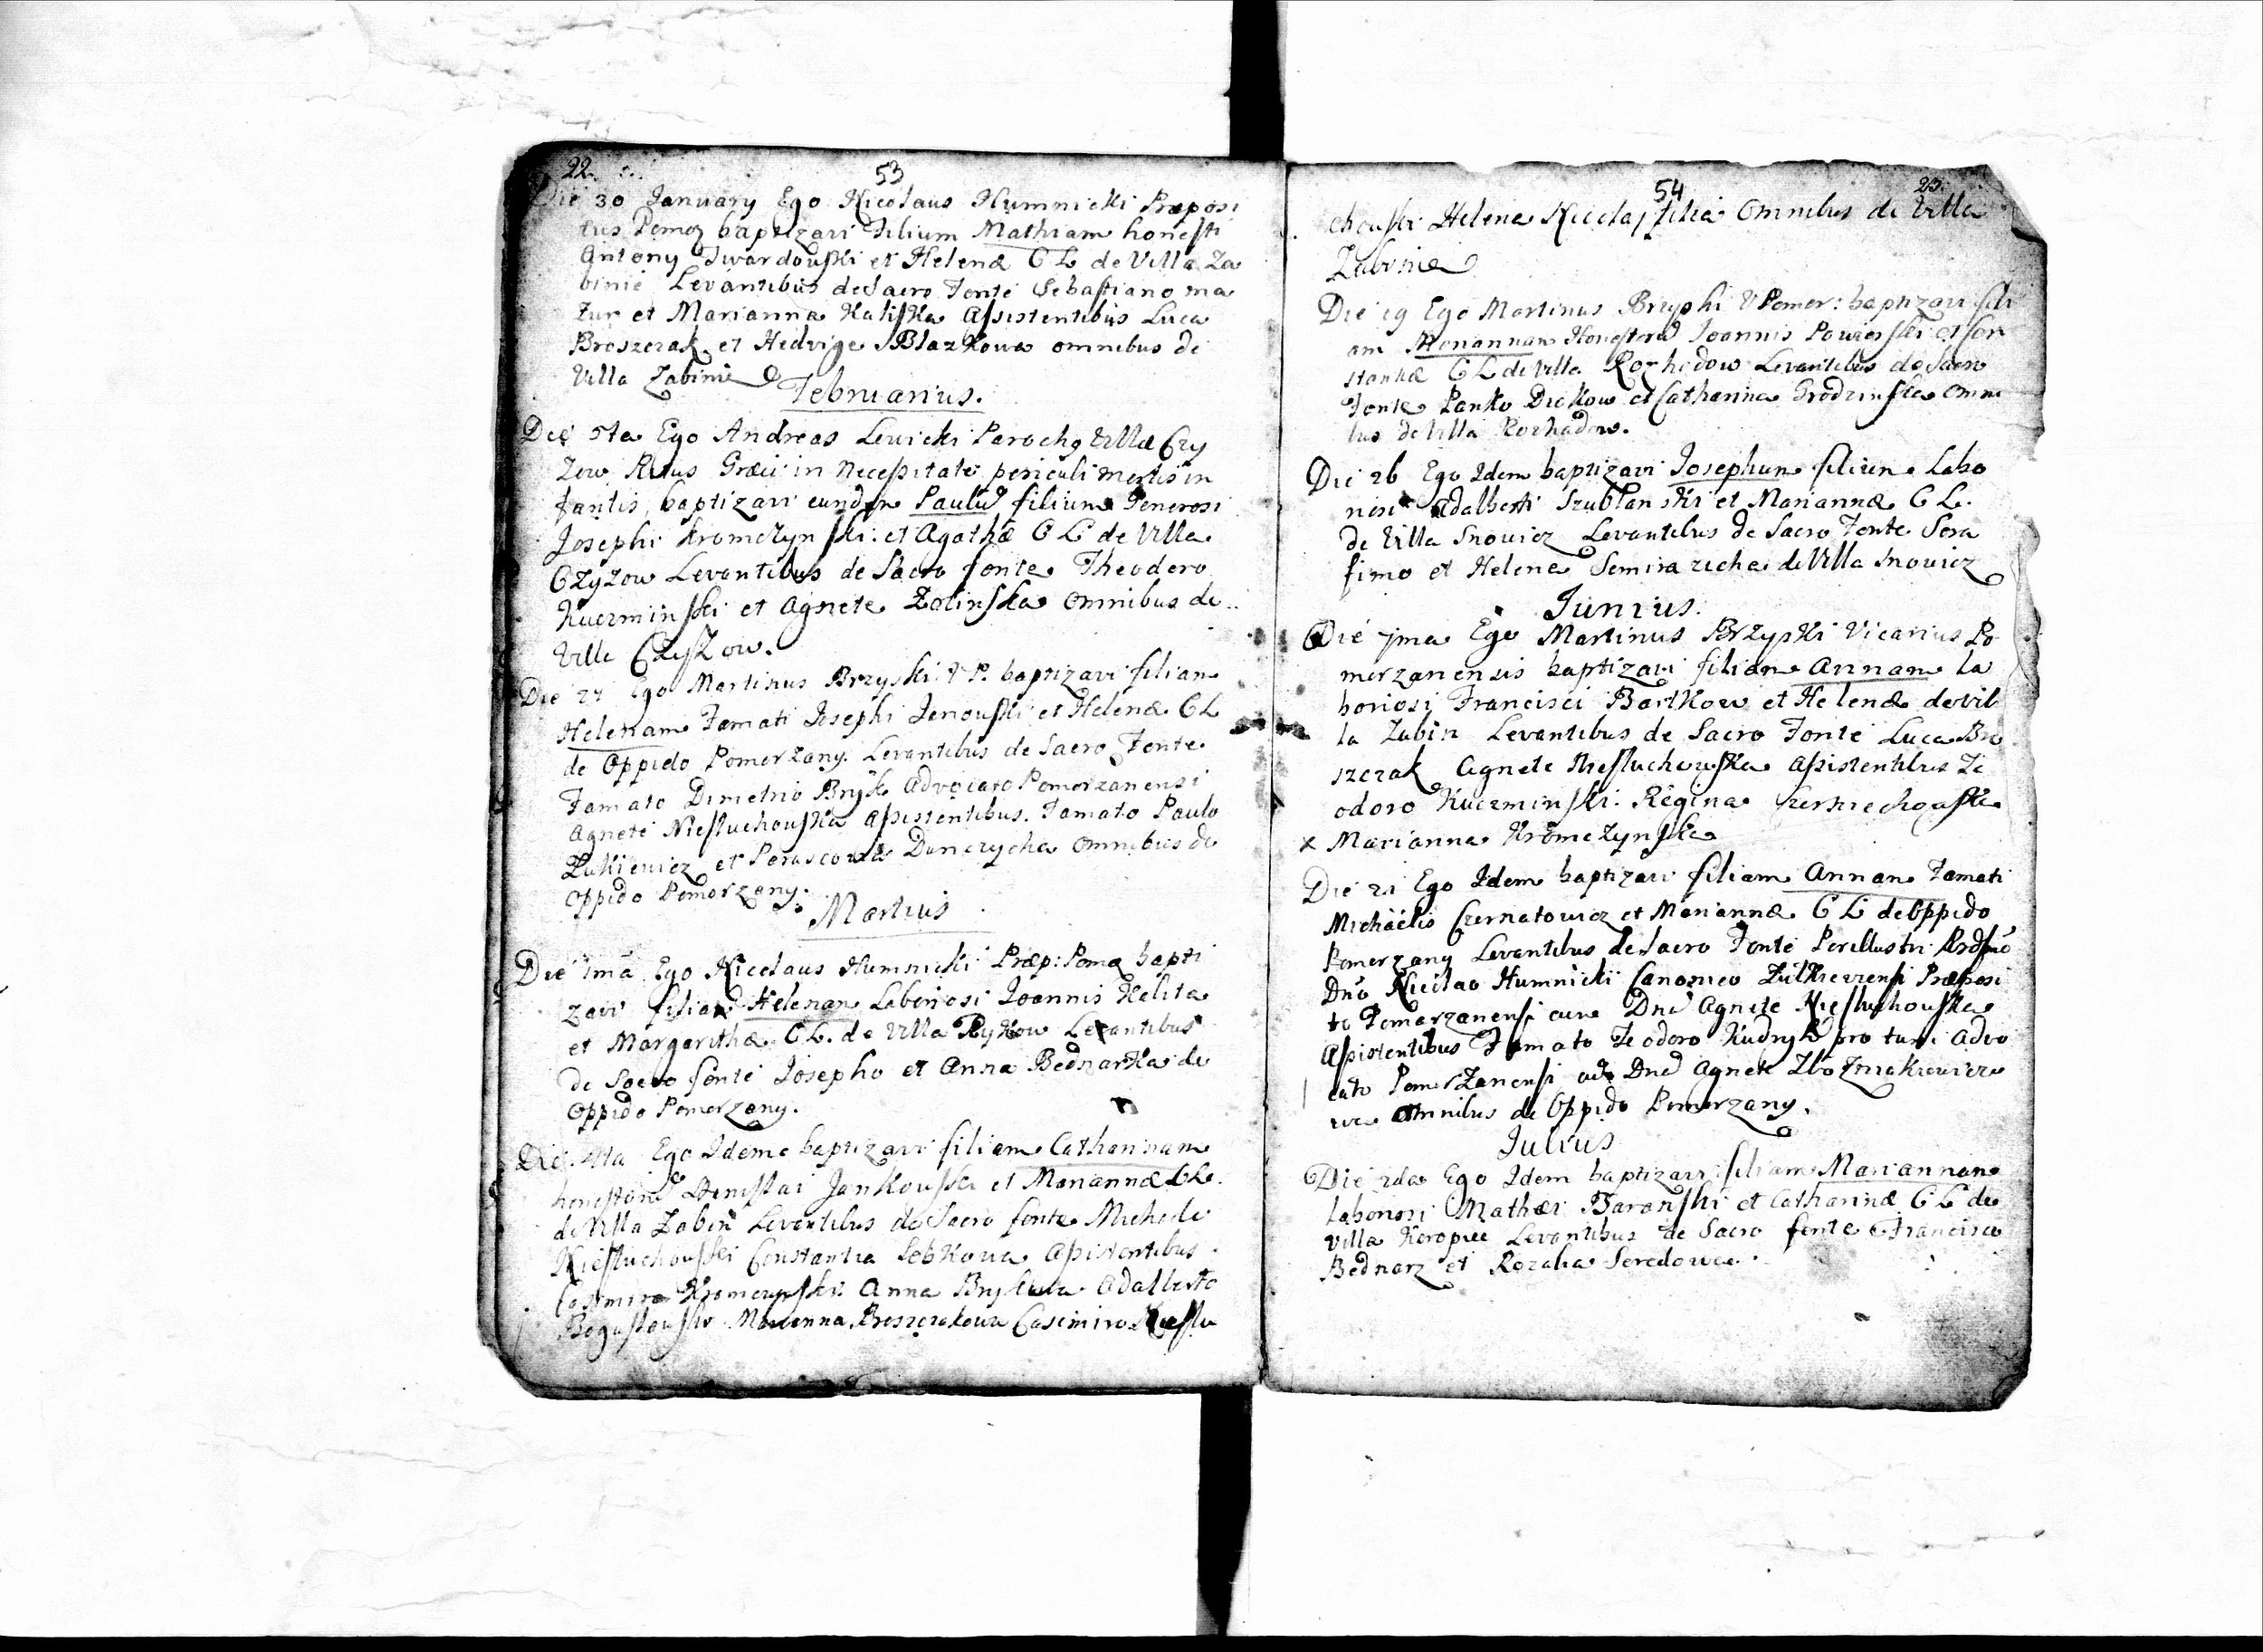 22.
53
Die 30 January Ego Nicolaus Humnicki Præposi
tus Pomoz baptizavi Filium Mathiam honesti
Antony Twardouski et Helenæ C L de Villa Za
binie Levantibus de Sacro Fonte Sebastiano ma
zur et Marianna Kaliska Assistentibus Luca
Broszczak et Hedvige Blazkowa omnibus de
Villa Zabinie
Februarius.
Die 5ta Ego Andreas Lewicki Parochq Villæ Czy
zow Ritus Græci in necessitate periculi mortis in
fantis, baptizavi eundem Paulū filium Generosi
Josephi Kromczynski et Agathæ C L de Villa
Czyzow Levantibus de Sacro fonte Theodoro
Kuczminski et Agnete Zolinska omnibus de
Villa Czyszow.
Die 27 Ego Martinus Brzyski V P. baptizavi filiam
Helenam Famati Josephi Jenouski et Helenæ C L
de Oppido Pomorzany. Levantibus de Sacro Fonte
Famato Dimetrio Bryk Advocato Pomorzanensi
Agnete Niesluchouska Assistentibus. Famato Paulo
Lukiewicz et Parascovia omnibus de
Oppido Pomorzany.
Martius
Die 1ma Ego Nicolaus Humnicki Præp: Pomo bapti
zavi filiam Helenam Laboriosi Joannis Kelita
et Margarithæ C L. de Villa Rykow Levantibus
de Sacro fonte Josepho et Anna Bednarka de
Oppido Pomorzany.
Die 4ta Ego Idem baptizavi filiam Catharinam
honestorū Stanislai Jankouski et Mariannæ C L.
de Villa Zabin Levantibus de Sacro fonte Michaele
Niesluchouski Constantia Sebkowa Assistentibus
Casimiro Kromczynski Anna Brykowa Adalberto
Boguslouski Marianna Broszczakowa Casimiro Nieslu
54
23.
chouski Helena Nicolaj filia Omnibus de Villa
Zabinie
Die 19 Ego Martinus Brzyski V Pomor: baptizavi fili
am Mariannam Honestorū Joannis Powierski et Con
stantiæ C L de Villa Rozhadow Levantibus de Sacro
Fonte Panko Dickow et Catharina Grodzinska Omni
bus de Villa Rozhadow.
Die 26 Ego Idem baptizavi Josephum filium Labo
riosi Adalberti Szublanski et Mariannæ C L.
de Villa Snowicz Levantibus de Sacro Fonte Sera
fimo et Helena Semirazicha de Villa Snowicz
Junius.
Die 7ma Ego Martinus Brzyski Vicarius Po
morzanensis baptizavi filiam Annam la
boriosi Francisci Bartkow et Helenæ de vil
la Zabin Levantibus de Sacro Fonte Luca Bro
szczak Agnete Niesluchowska Assistentibus Te
odoro Kuczminski Regina Czerniechouska
x Marianna Kromczynska
Die 21 Ego Idem baptizavi filiam Annam Famati
Michaelis Czernatowicz et Mariannæ C L de Oppido
Pomorzany Levantibus de Sacro Fonte Perillustri Rndsmo
Dno Nicolao Humnicki Canonico Zulkieviensi Præposi
to Pomorzanensi cum Dna Agnete Niesluchouska
Assistentibus Famato Teodoro Kudryk pro tunc Advo
cato Pomorzanensi Dna Agnete
wa Omnibus de Oppido Pomorzany.
Julius
Die 2da Ego Idem baptizavi filiam Mariannam
Laboriosi Mathæi Baranski et Catharinæ C L de
Villa Koropiec Levantibus de Sacro fonte Francisco
Bednarz et Rozalia Seredowa.